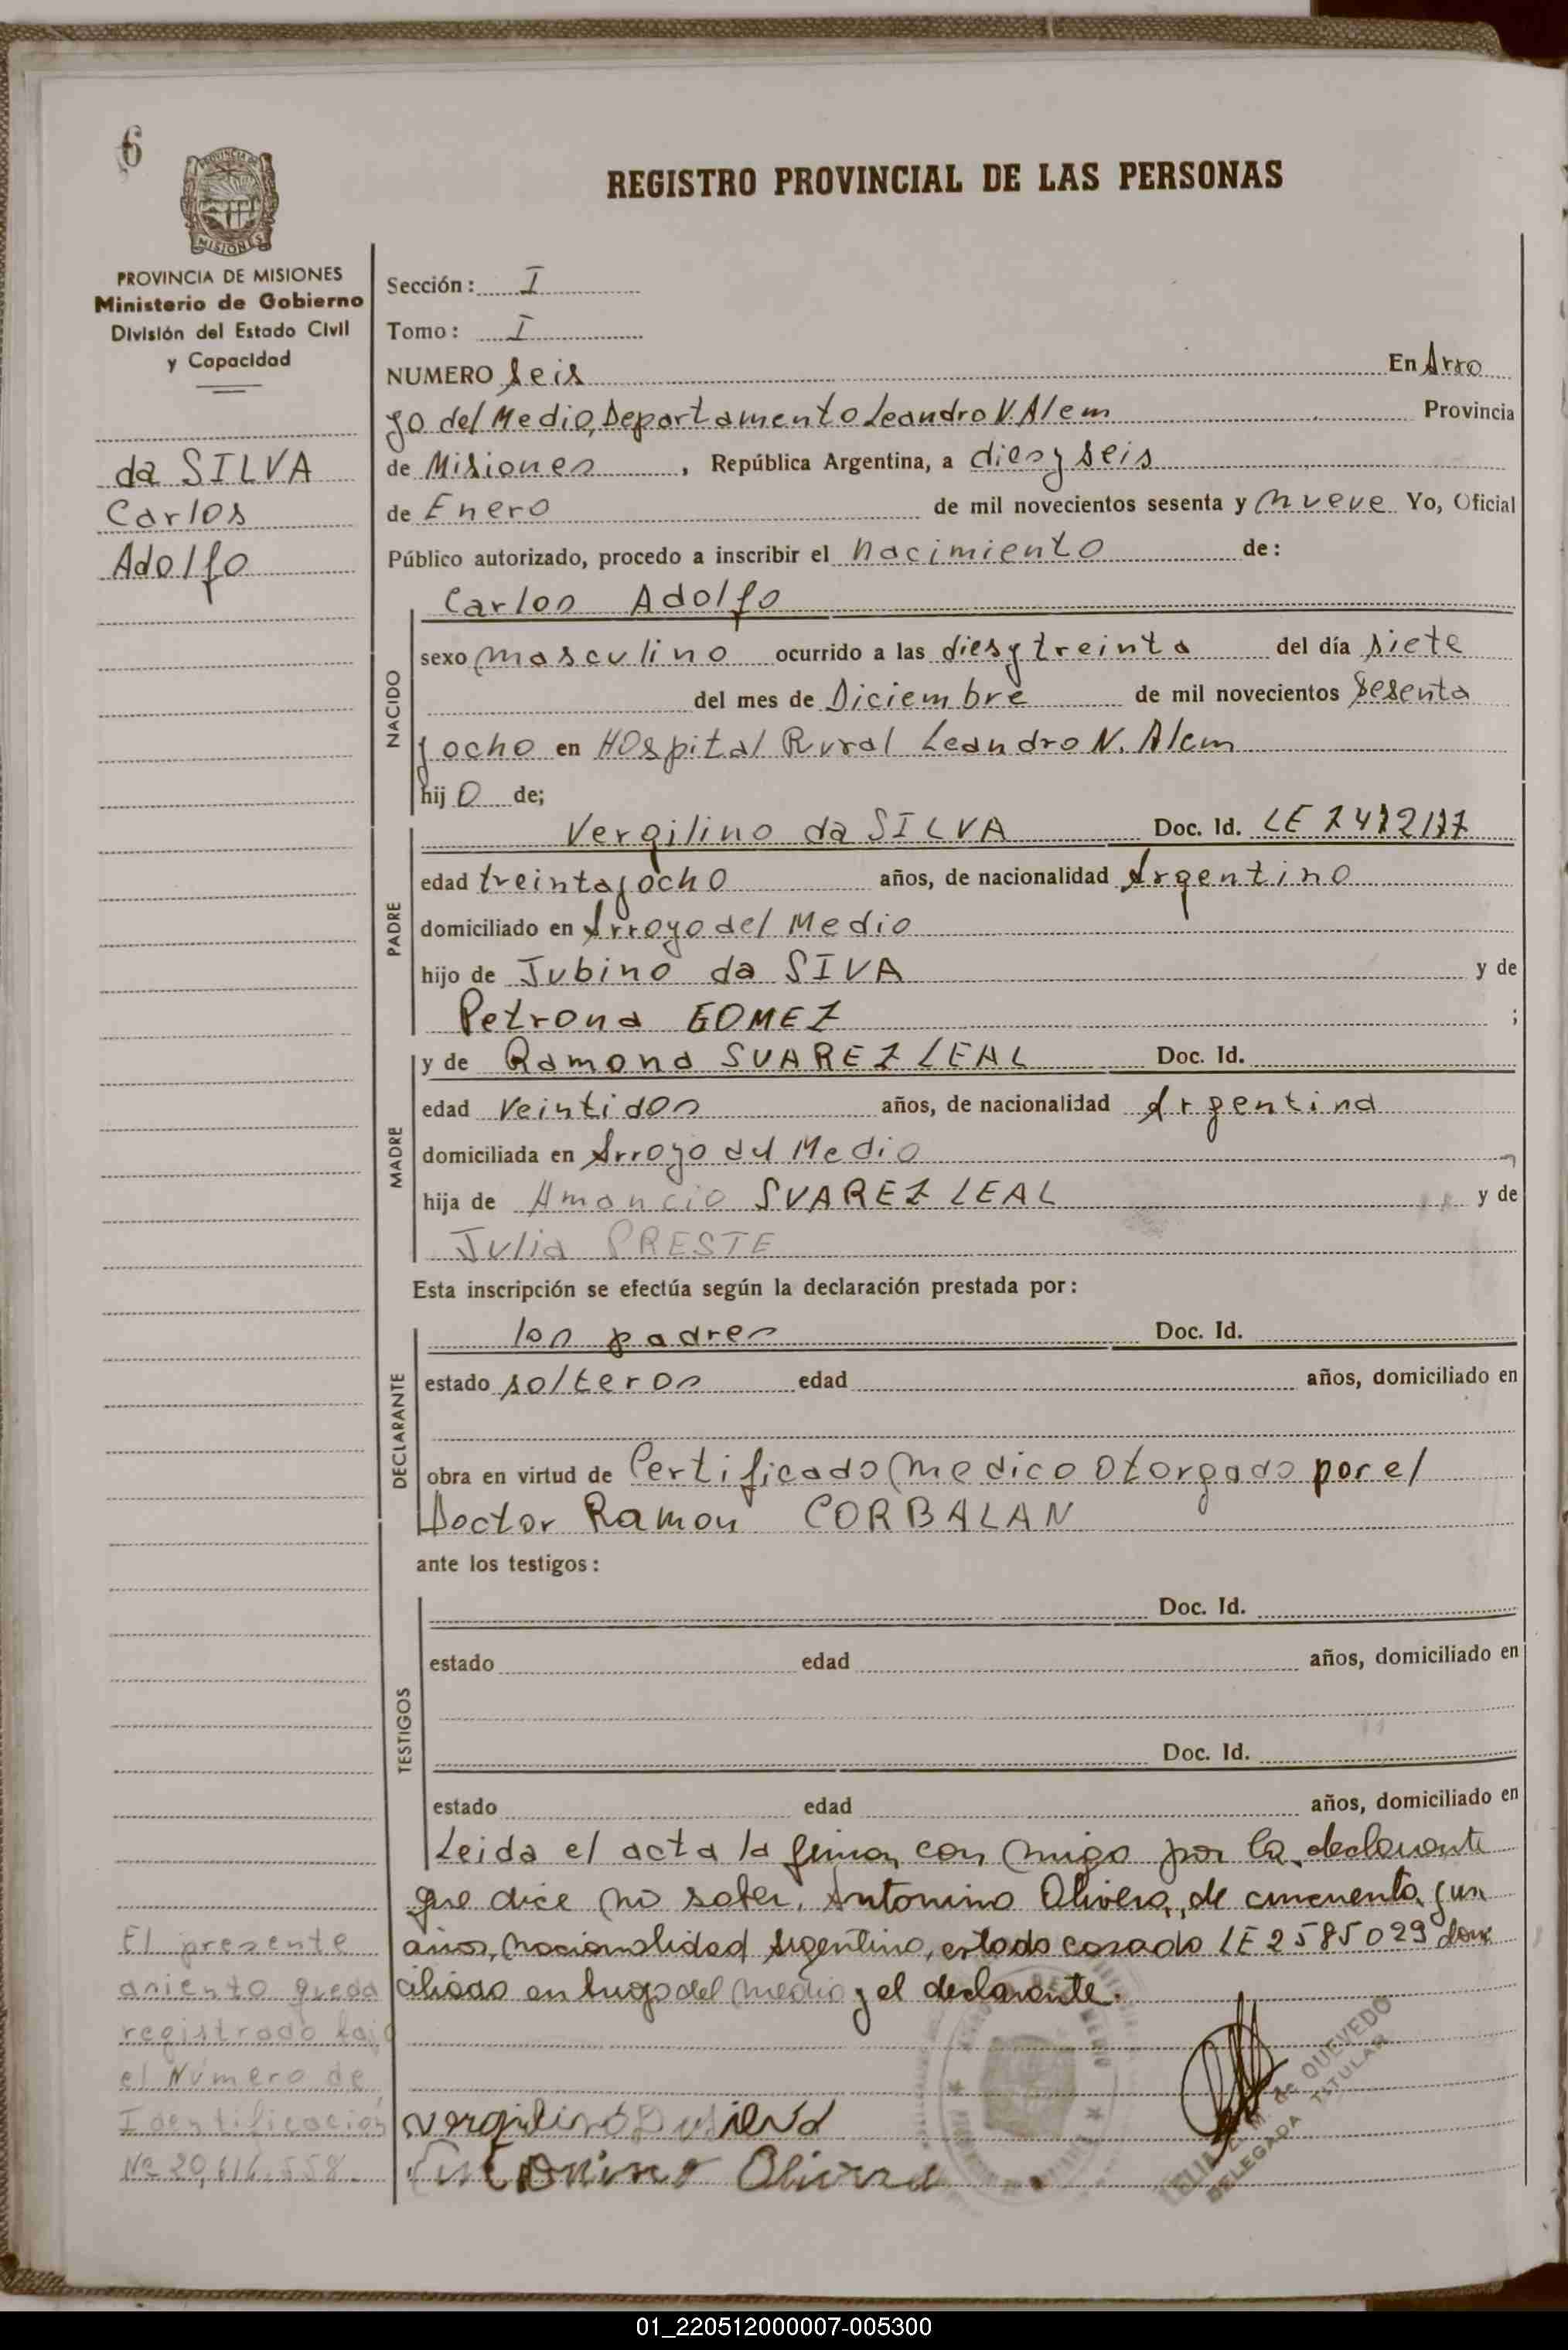 6
PROVINCIA DE
MISIONES
REGISTRO PROVINCIAL DE LAS PERSONAS
PROVINCIA DE MISIONES
Ministerio de Gobierno
División del Estado Civil
y Capacidad
da SILVA
Carlos
Adolfo
Sección: I
Tomo: I
NUMERO seis En Arro
yo del Medio, Departamento Leandro N. Alem Provincia
de Misiones, República Argentina, a dies y seis
de Enero de mil novecientos sesenta y nueve Yo, Oficial
Público autorizado, procedo a inscribir el nacimiento de:
NACIDO
Carlos Adolfo
sexo masculino ocurrido a las dies y treinta del día siete
del mes de Diciembre de mil novecientos sesenta
y ocho en Hospital Rural Leandro N. Alem
hijo de;
PADRE
Vergilino da SILVA Doc. Id. LE
edad treinta y ocho años, de nacionalidad Argentino
domiciliado en Arroyo del Medio
hijo de Jubino da SIVA y de
Petrona GOMEZ ;
MADRE
y de Ramona SUAREZ LEAL Doc. Id.
edad veintidos años, de nacionalidad Argentina
domiciliada en Arroyo del Medio
hija de Amancio SUAREZ LEAL y de
Julia PRESTE
Esta inscripción se efectúa según la declaración prestada por:
DECLARANTE
los padres Doc. Id.
estado solteros edad años, domiciliado en
obra en virtud de Certificado medico otorgado por el
Doctor Ramon CORBALAN
ante los testigos:
TESTIGOS
Doc. Id.
estado edad años, domiciliado en
Doc. Id.
estado edad años, domiciliado en
Leida el acta la firman con migo por la declarante
que dice no saber, Antonino Olivera, de cincuenta y un
años, nacionalidad Argentino, estado casado LE 2585029 domi
ciliado en Arroyo del medio y el declarante.
El presente
asiento queda
registrado bajo
el Numero de
Identificación
Nº 20,616,558
vergilino Da silva
Antonino Olivera
M. de QUEVEDO
DELEGADA TITULAR
01_220512000007-005300